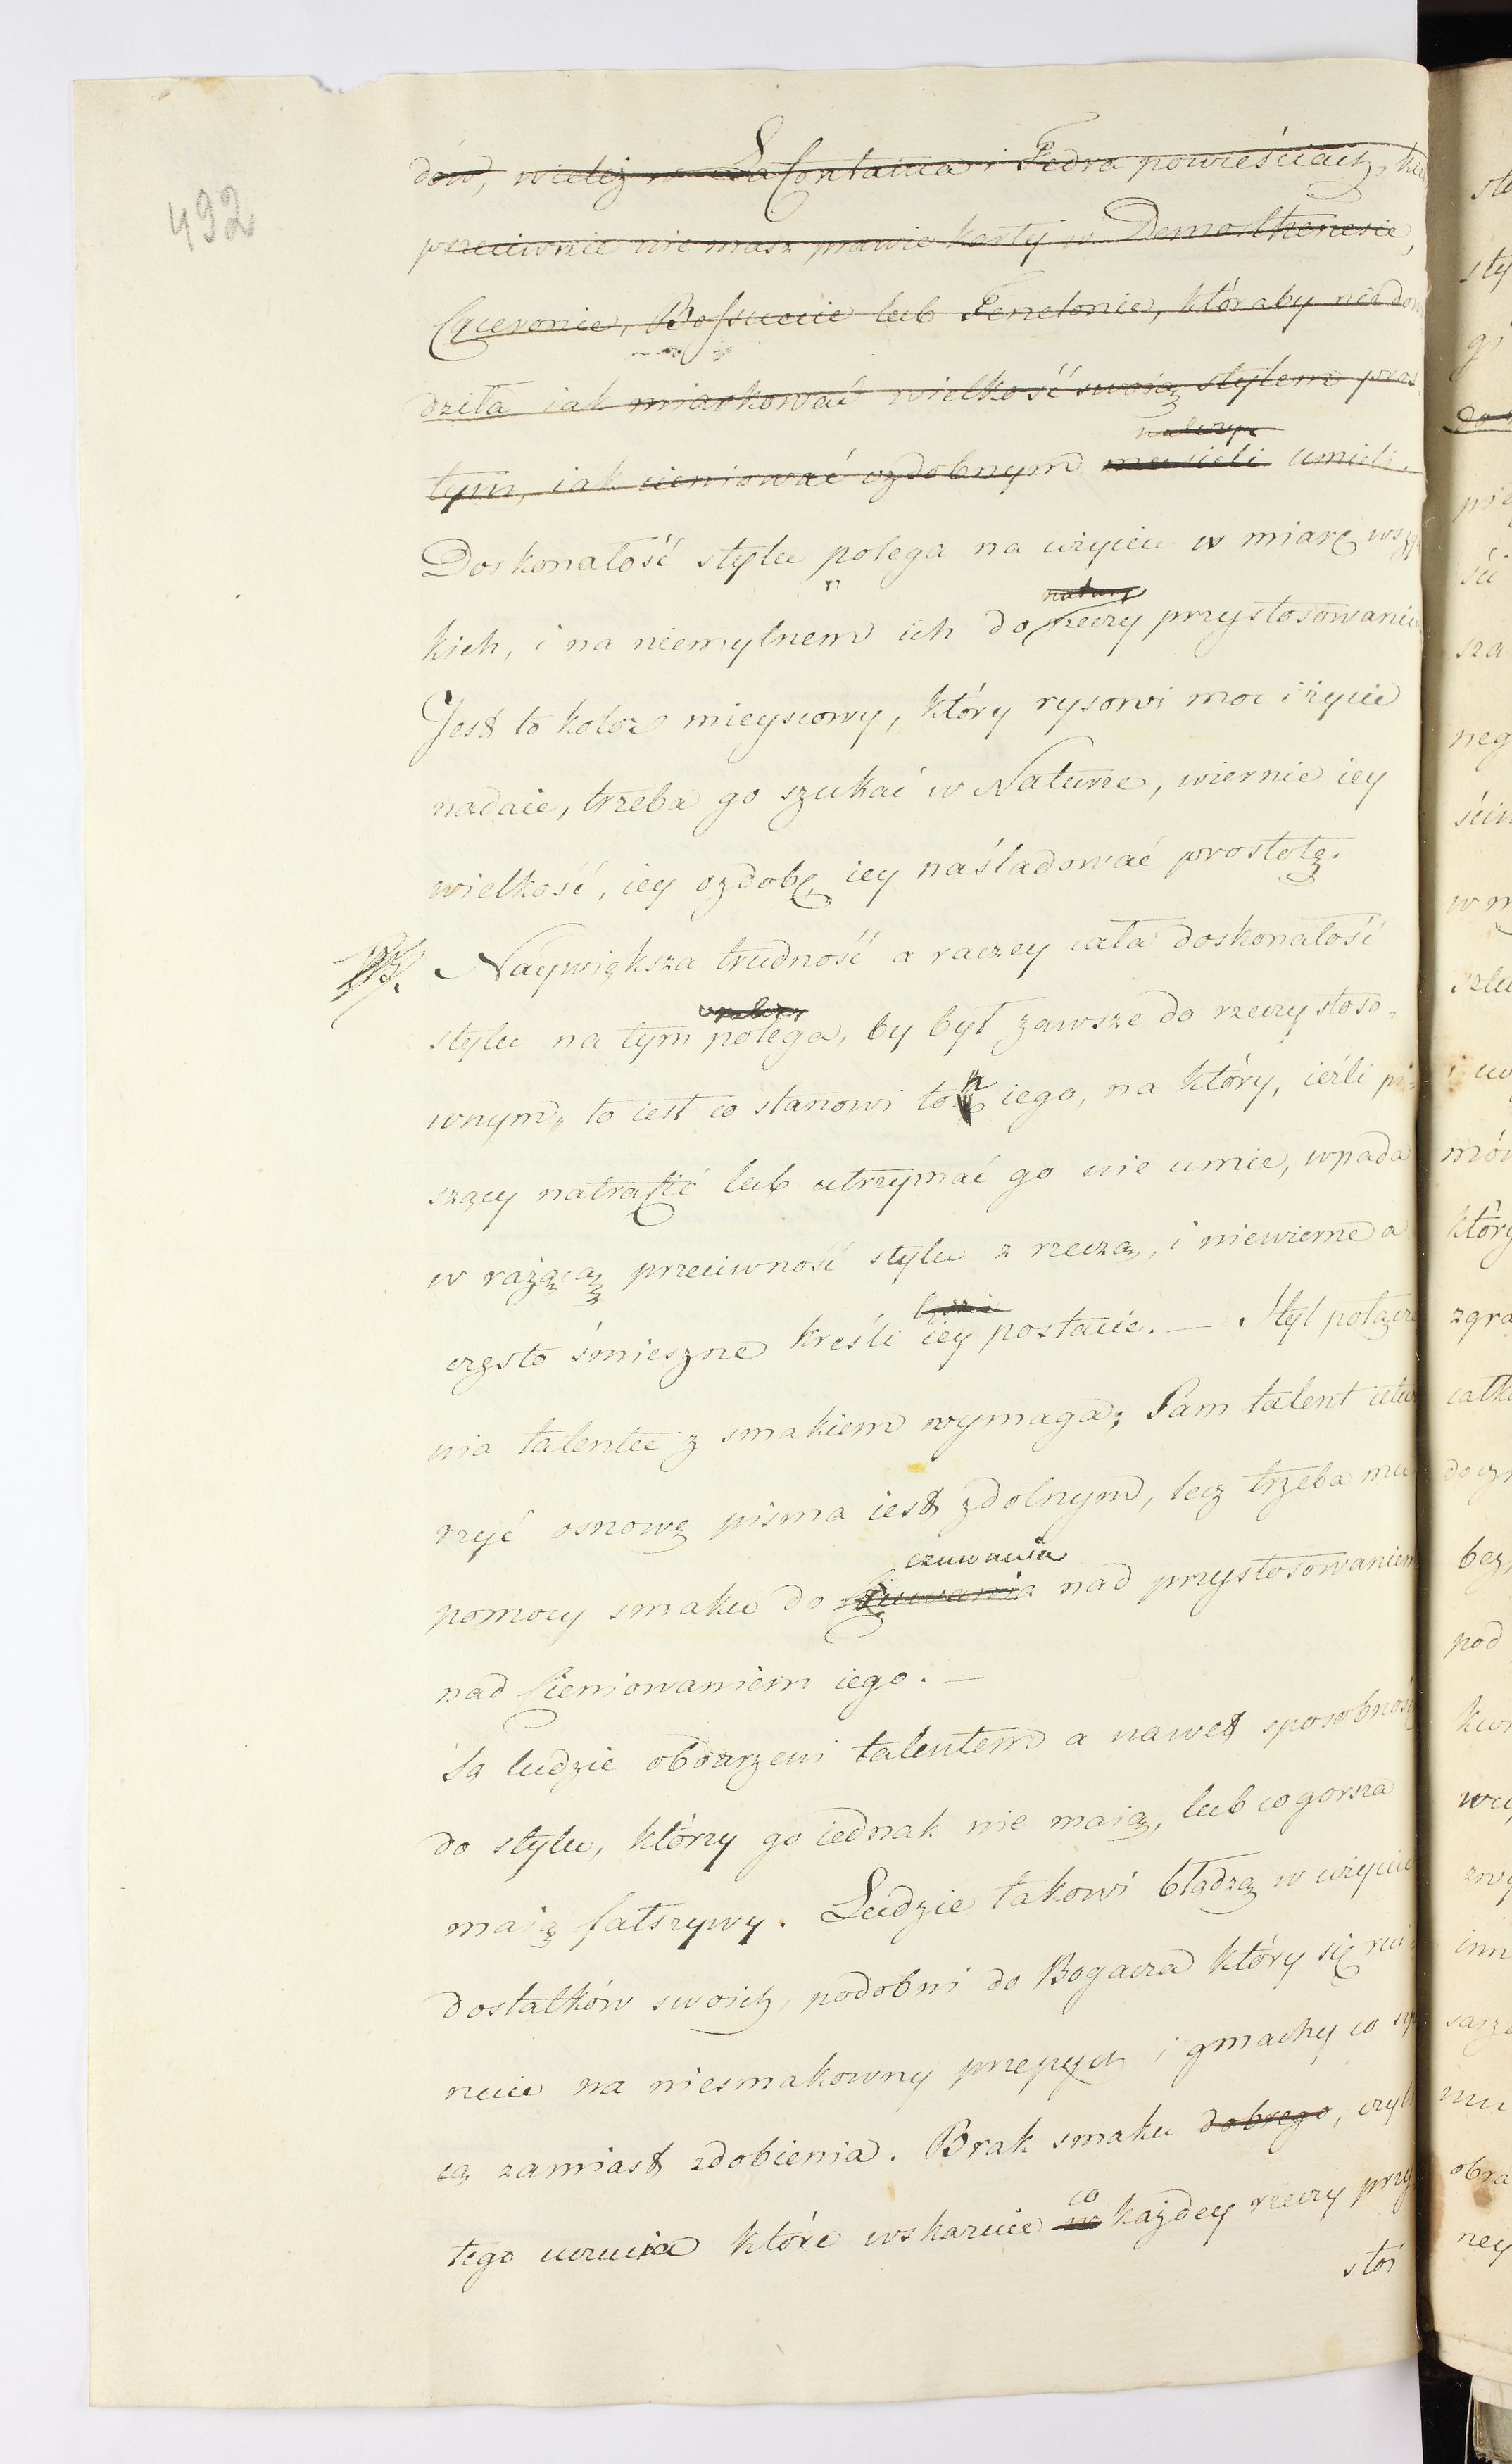 492
dów, wieleż w LaFontaina i Fedra powieściach,
przeciwnie nie masz prawie karty w Demosthenesie,
Cyceronie, Bossuecie lub Fenelonie, któraby niedow
dziła iak miarkować wielkość swoią stylem pros
tym, iak cieniować ozdobnym musieli umieli.
Doskonałość stylu polega na użyciu w miarę wszys
natury
kich, i na niemylnem ich do rzeczy przystosowaniu
Jest to kolor mieyscowy, który rysowi moc i życie
nadaie, trzeba go szukać w Naturze, wiernie iey
wielkość, iey ozdobę, iey naśladować prostotę.
Naywiększa trudność a raczey cała doskonałość
stylu na tym polega, by był zawsze do rzeczy stoso=
wnym, to iest co stanowi ton iego, na który, ieźli pi=
szący natrafić lub utrzymać go nie umie, wpada
w rażącą przeciwność stylu z rzeczą, i niewierne a
często śmieszne kreśli iey postacie. — Styl połącze
nia talentu z smakiem wymaga; Sam talent utwo
rzyć osnowę pisma iest zdolnym, lecz trzeba mu
czuwania
pomocy smaku do czuwania nad przystosowaniem
nad cieniowaniem iego. —
Są ludzie obdarzeni talentem a nawet sposobnością
do stylu, którzy go iednak nie maią, lub co gorsza
maią fałszywy. Ludzie takowi błądzą w użyciu
dostatków swoich, podobni do Bogacza który się rui
nuie na niesmakowny przepych i gmachy co szpe
cą zamiast zdobienia. Brak smaku dobrego, czyli
co
tego uczucia które wskazuie w każdey rzeczy przy
stoi